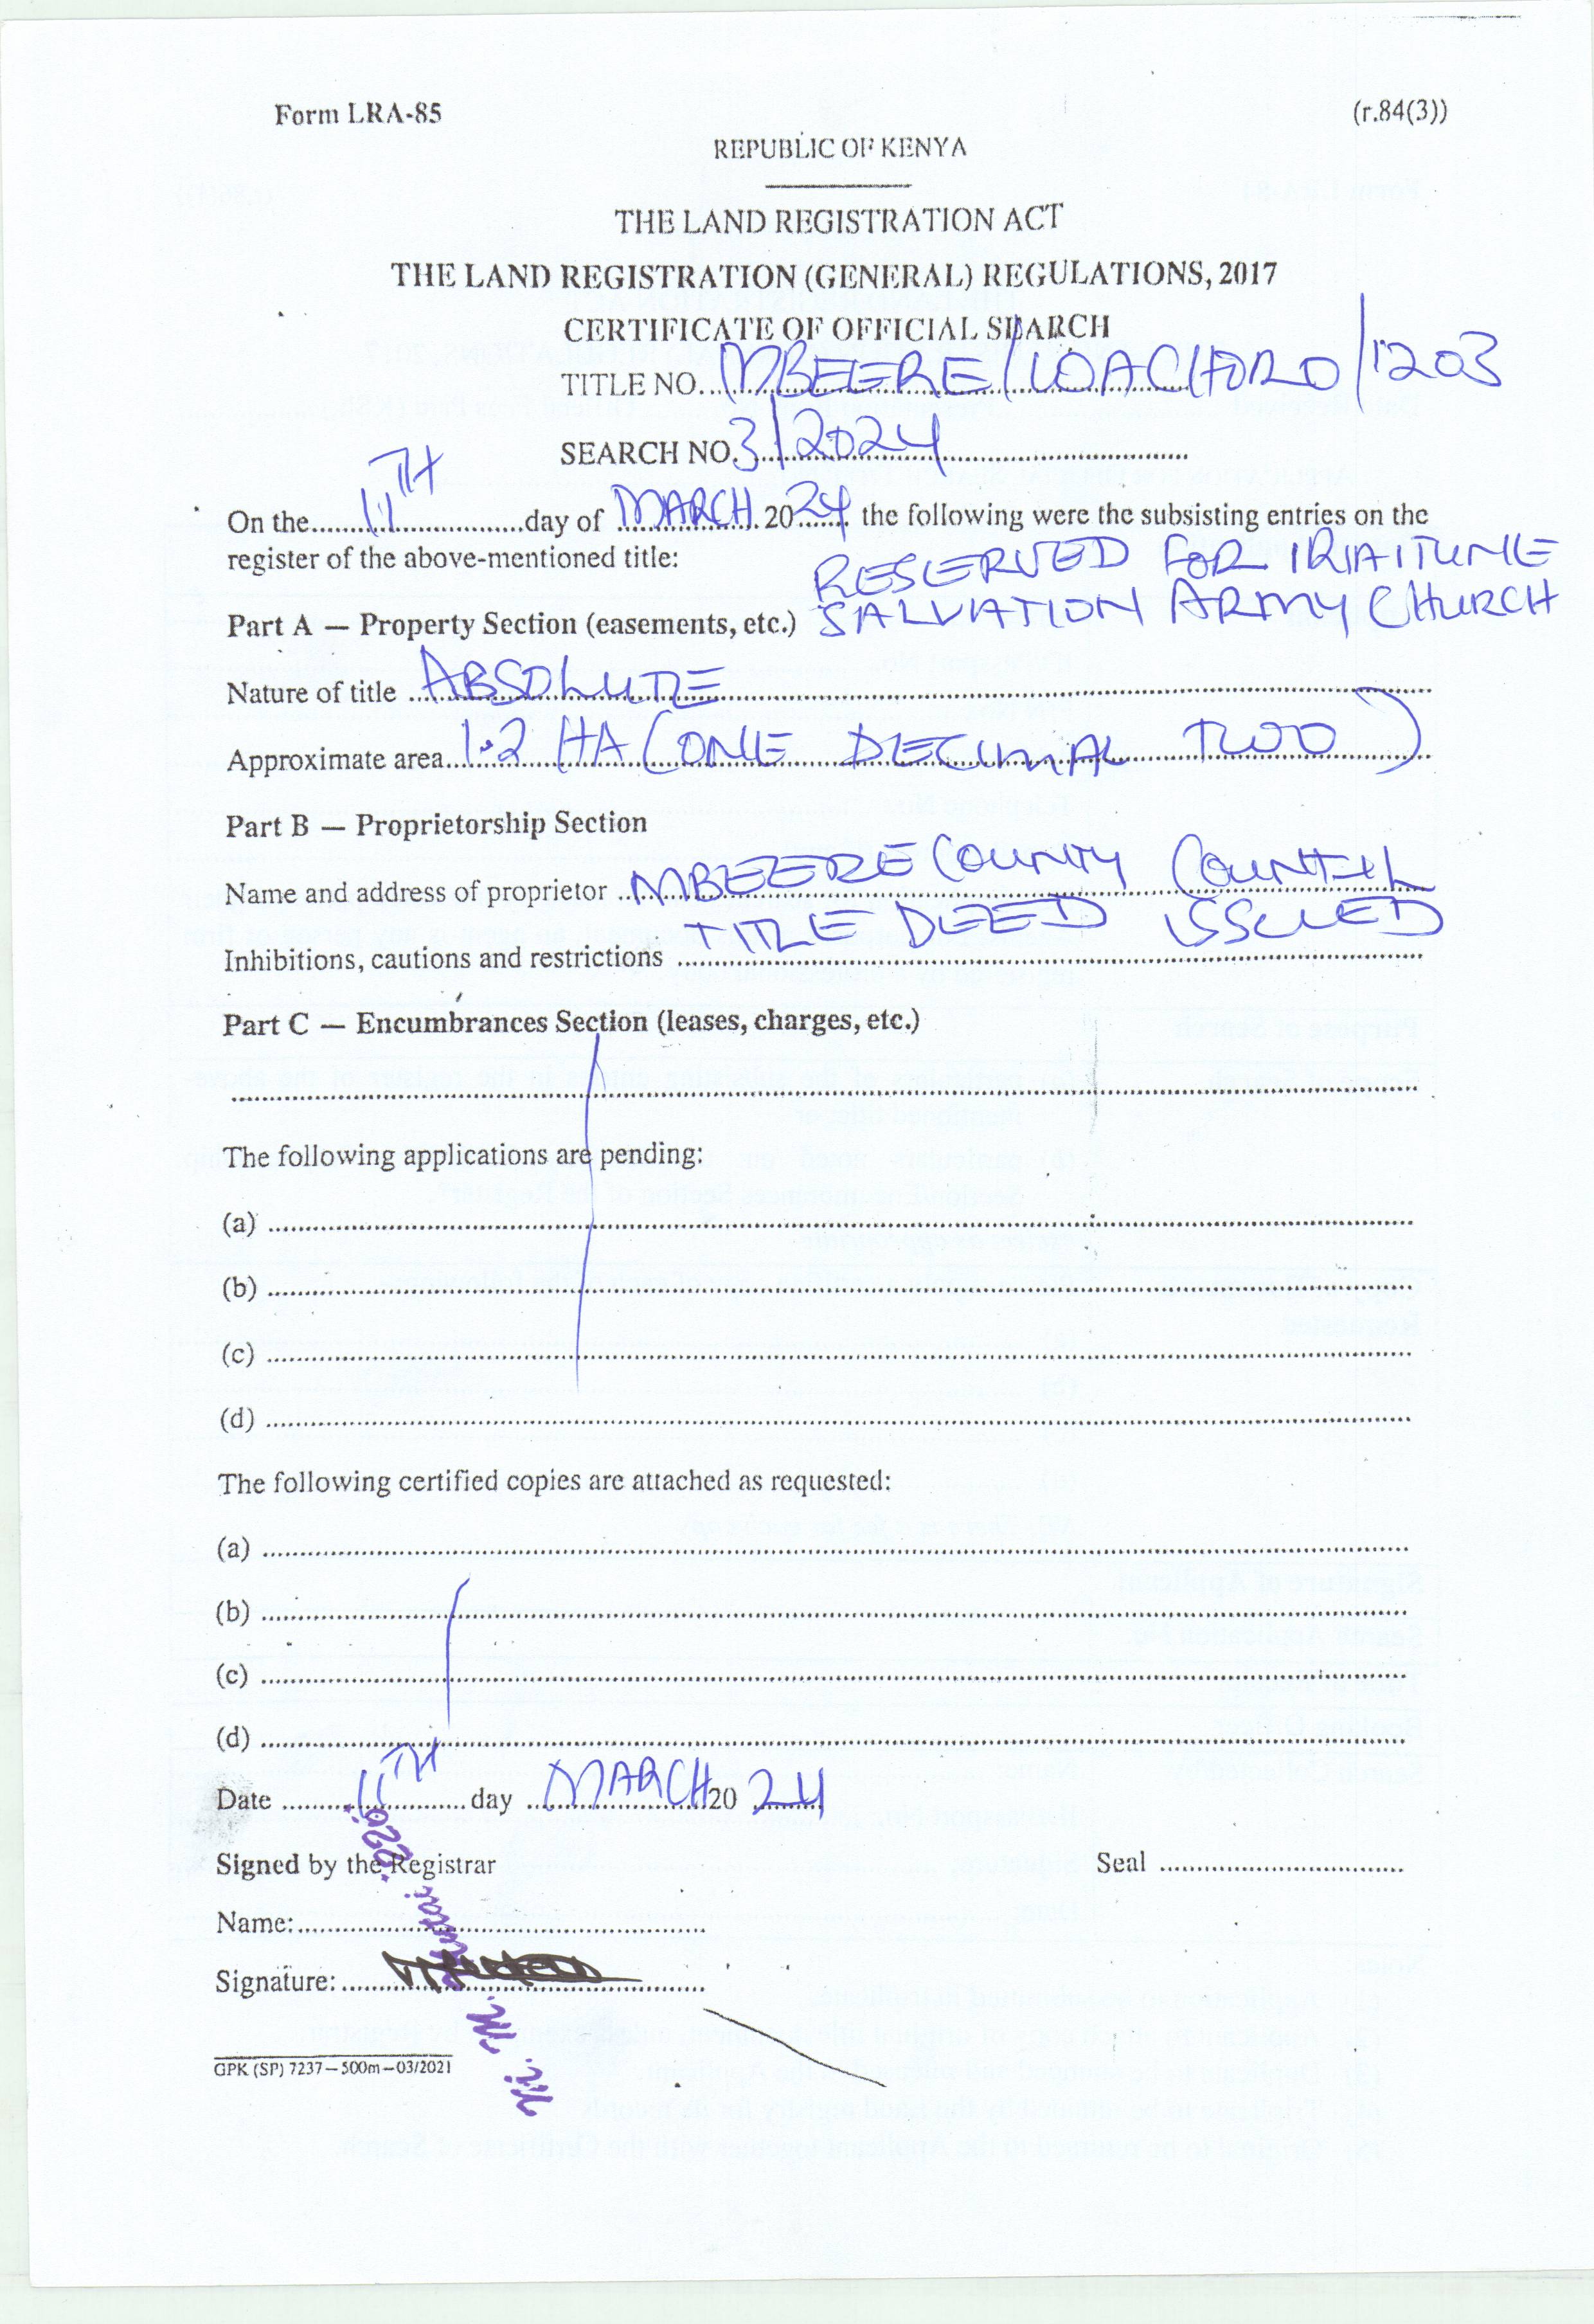 Form LRA-85
(r.84(3))
REPUBLIC OF KENYA
THE LAND REGISTRATION ACT
THE LAND REGISTRATION (GENERAL) REGULATIONS, 2017
CERTIFICATE OF OFFICIAL SEARCH
TITLE NO. MBEERE/WACHORO/1203
SEARCH NO. 3/2024
On the 11TH day of MARCH 2024 the following were the subsisting entries on the
register of the above-mentioned title:
RESERVED FOR IRIAITUNE
Part A — Property Section (easements, etc.) SALVATION ARMY CHURCH
Nature of title ABSOLUTE
Approximate area 1.2 HA (ONE DECIMAL TWO)
Part B — Proprietorship Section
Name and address of proprietor MBEERE COUNTY COUNTIL
TITLE DEED ISSUED
Inhibitions, cautions and restrictions
Part C — Encumbrances Section (leases, charges, etc.)
The following applications are pending:
(a)
(b)
(c)
(d)
The following certified copies are attached as requested:
(a)
(b)
(c)
(d)
Date 11TH day MARCH 2024
Signed by the Registrar
Seal
Name:
Signature:
GPK (SP) 7237—500m—03/2021